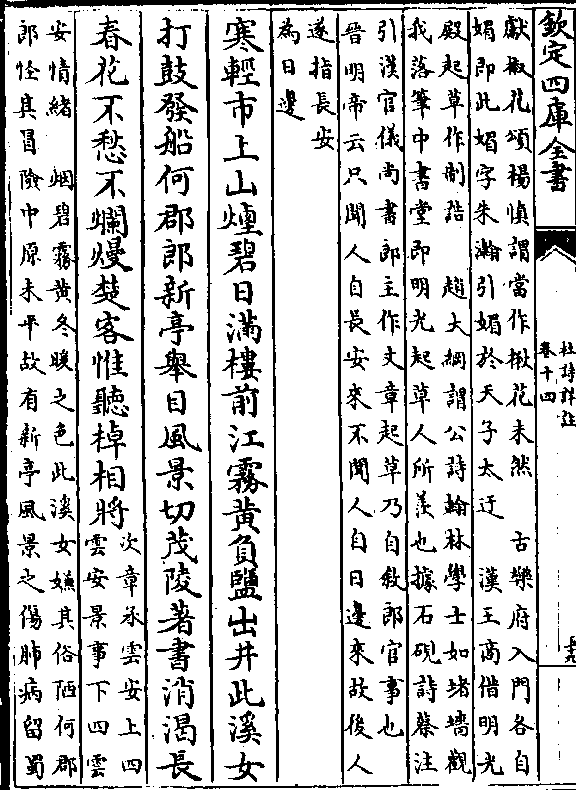 欽定四庫全書
杜詩詳註
卷十四
獻椒花頌楊慎謂當作椒花未然　古樂府入門各自
媚即此媚字朱瀚引媚於天子太迂　漢王商借明光
殿起草作制誥　趙大綱謂公詩翰林學士如堵墻觀
我落筆中書堂即明光起草人所羨也據石硯詩蔡注
引漢官儀尚書郎主作文章起草乃自敘郎官事也
晉明帝云只聞人自長安來不聞人自日邊來故後人
遂指長安
為日邊
寒輕市上山煙碧日滿樓前江霧黃負鹽出井此溪女
打鼓發船何郡郎新亭舉目風景切茂陵著書消渴長
春花不愁不爛熳楚客惟聽棹相將
次章承雲安上四
雲安景事下四雲
安情緒　烟碧霧黃冬暖之色此溪女嫌其俗陋何郡
郎怪其冒險中原未平故有新亭風景之傷肺病留蜀